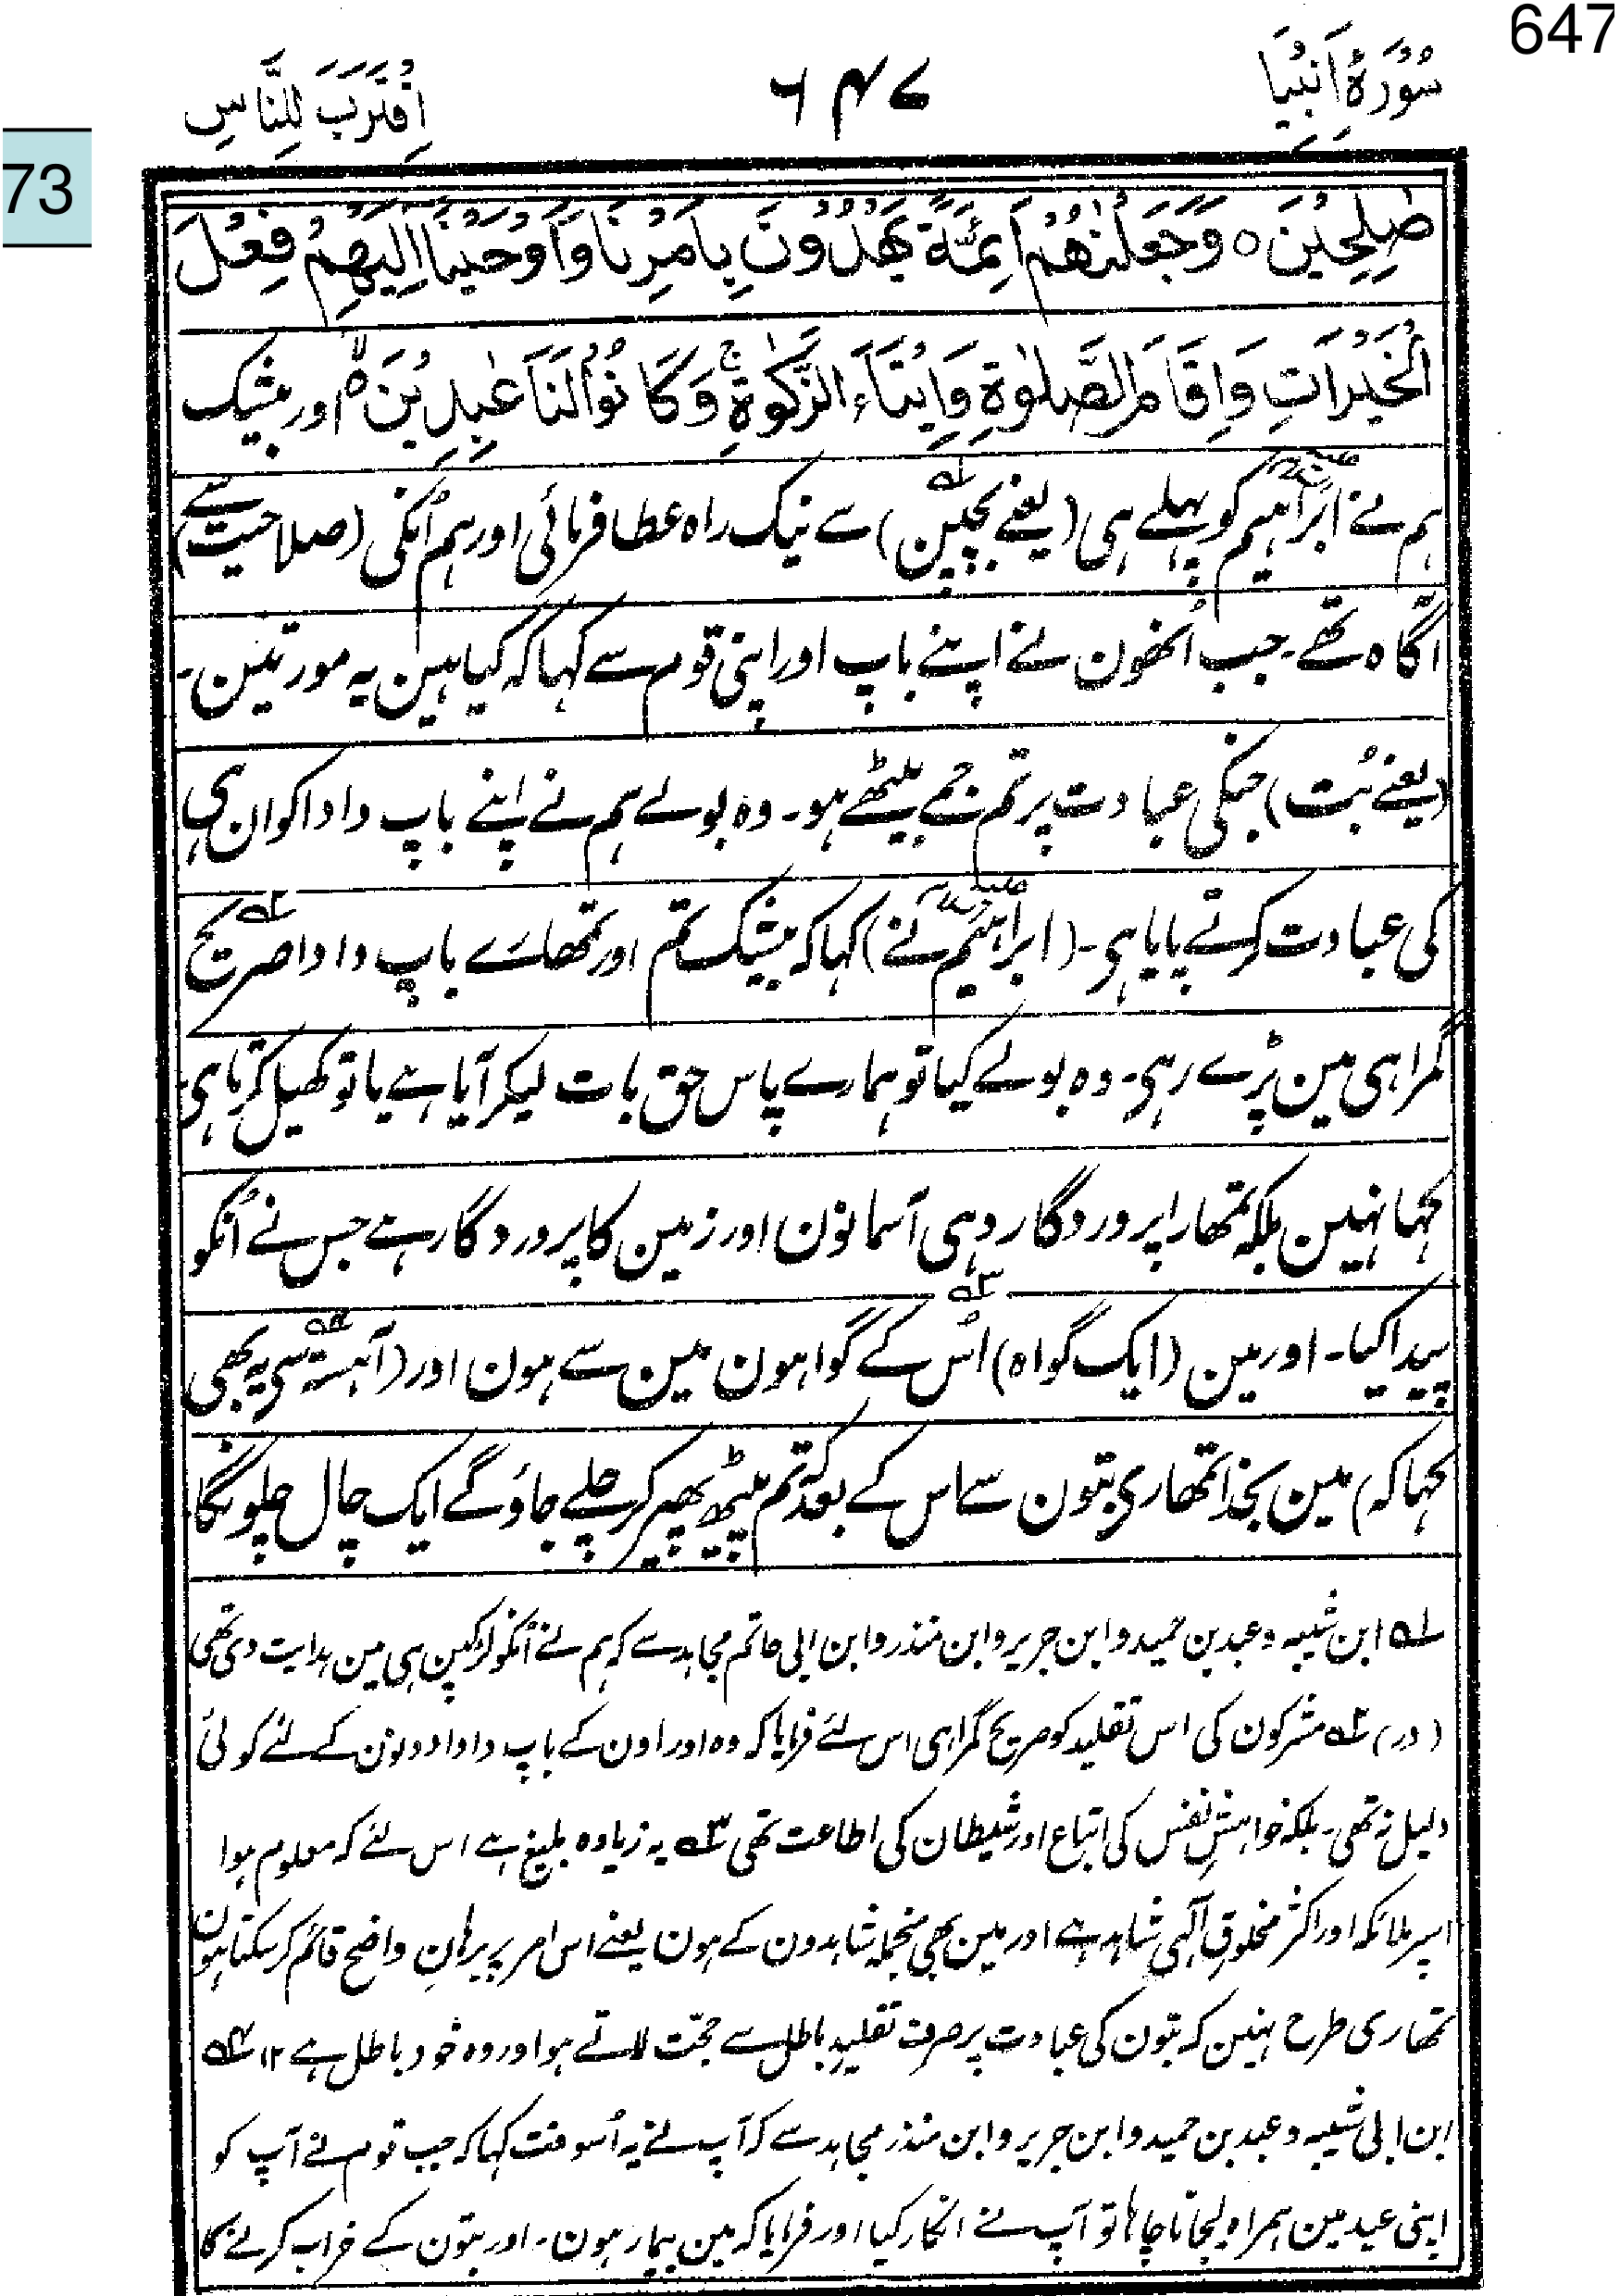 647
سُوْرَۃُ اَنْبِیَا
۶۴۷
اِقْتَرَبَ لِلنَّاسِ
73
صٰلِحِيْنَ ○ وَجَعَلْنٰهُمْ اَئِمَّةً يَّهْدُوْنَ بِاَمْرِنَا وَاَوْحَيْنَا اِلَيْهِمْ فِعْلَ
الْخَيْرَاتِ وَاِقَامَ الصَّلٰوةِ وَاِيْتَآءَ الزَّكٰوةِ ج وَكَانُوْا لَنَا عٰبِدِيْنَ ○ لا اور بیشک
ہم نے ابراہیم کو پہلے ہی (یعنے بچپن) ۱؎ سے نیک راہ عطا فرمائی اور ہم اُنکی (صلاحیت سے)
آگاہ تھے۔ جب اُنھون نے اپنے باپ اور اپنی قوم سے کہا کہ کیا ہین یہ مورتین۔
(یعنے بُت) جنکی عبادت پر تم جمے بیٹھے ہو۔ وہ بولے ہم نے اپنے باپ دادا کو ان ہی
کی عبادت کرتے پایا ہی۔ (ابراہیم نے) کہا کہ بیشک تم اور تمھارے باپ دادا صریح ۲؎
گمراہی مین پڑے رہی۔ وہ بولے کیا تو ہمارے پاس حق بات لیکر آیا ہے یا تو کھیل کرتا ہی۔
کہا نہین بلکہ تمھارا پروردگار وہی آسمانون اور زمین کا پروردگار ہے جس نے اُنکو
پیدا کیا۔ اور مین (ایک گواہ) اُس کے گواہون ۳؎ مین سے ہون اور (آہستہ ۴؎ سی یہ بھی
کہا کہ) مین بخدا تمھاری بتون سے اس کے بعد کہ تم پیٹھ پھیر کر چلے جاؤ گے ایک چال چلونگا
۱؎ ابن شیبہ و عبد بن حمید و ابن جریر و ابن منذر و ابن ابی حاتم مجاہد سے کہ ہم نے اُنکو لڑکپن ہی مین ہدایت دی تھی
(در) ۲؎ مشرکون کی اس تقلید کو صریح گمراہی اس لئے فرمایا کہ وہ اور اون کے باپ دادا دونون کے لئے کوئی
دلیل نہ تھی۔ بلکہ خواہشِ نفس کی اتباع اور شیطان کی اطاعت تھی ۳؎ یہ زیادہ بلیغ ہے اس لئے کہ معلوم ہوا
اسپر ملائکہ اور اکثر مخلوقِ الٓہی شاہد ہے اور مین بھی منجملہ شاہدون کے ہون یعنے اس امر پر برہانِ واضح قائم کرسکتا ہون
تمھاری طرح نہین کہ بتون کی عبادت پر صرف تقلیدِ باطل سے حجّت لاتے ہو اور وہ خود باطل ہے ۱۲ ۴؎
ابن ابی شیبہ و عبد بن حمید و ابن جریر و ابن منذر مجاہد سے کہ آپ نے یہ اُسوقت کہا کہ جب قوم نے آپ کو
اپنی عید مین ہمراہ لیجانا چاہا تو آپ نے انکار کیا اور فرمایا کہ مین بیمار ہون۔ اور بتون کے خراب کرنے کا